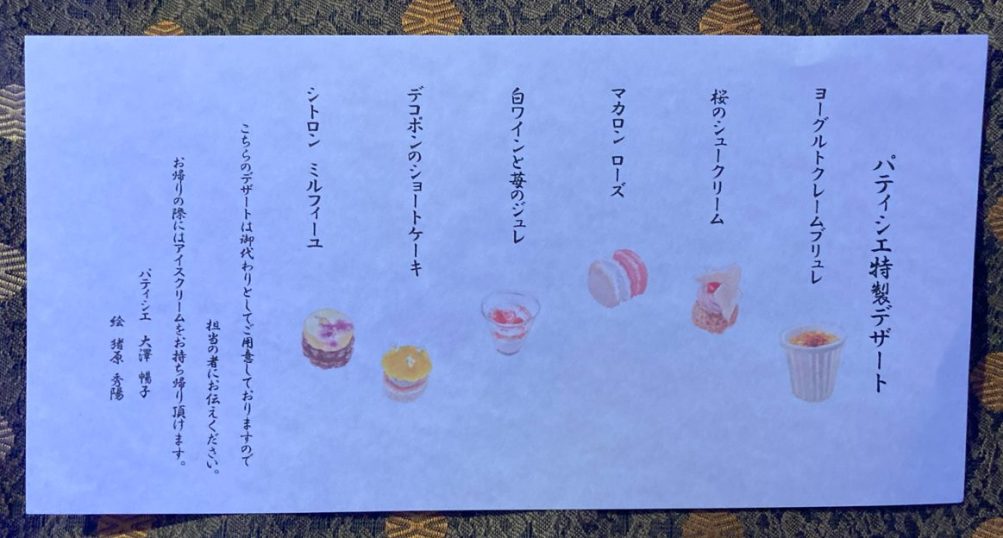 パティシエ特製デザート
ヨーグルトクレームブリュレ
桜のシュークリーム
マカロン ローズ
白ワインと苺のジュレ
デコポンのショートケーキ
シトロン ミルフィーユ
こちらのデザートは御代わりとしてご用意しておりますので
担当の者にお伝えください。
お帰りの際にはアイスクリームをお持ち帰り頂けます。
パティシエ 大澤 暢子
絵 猪原 秀陽